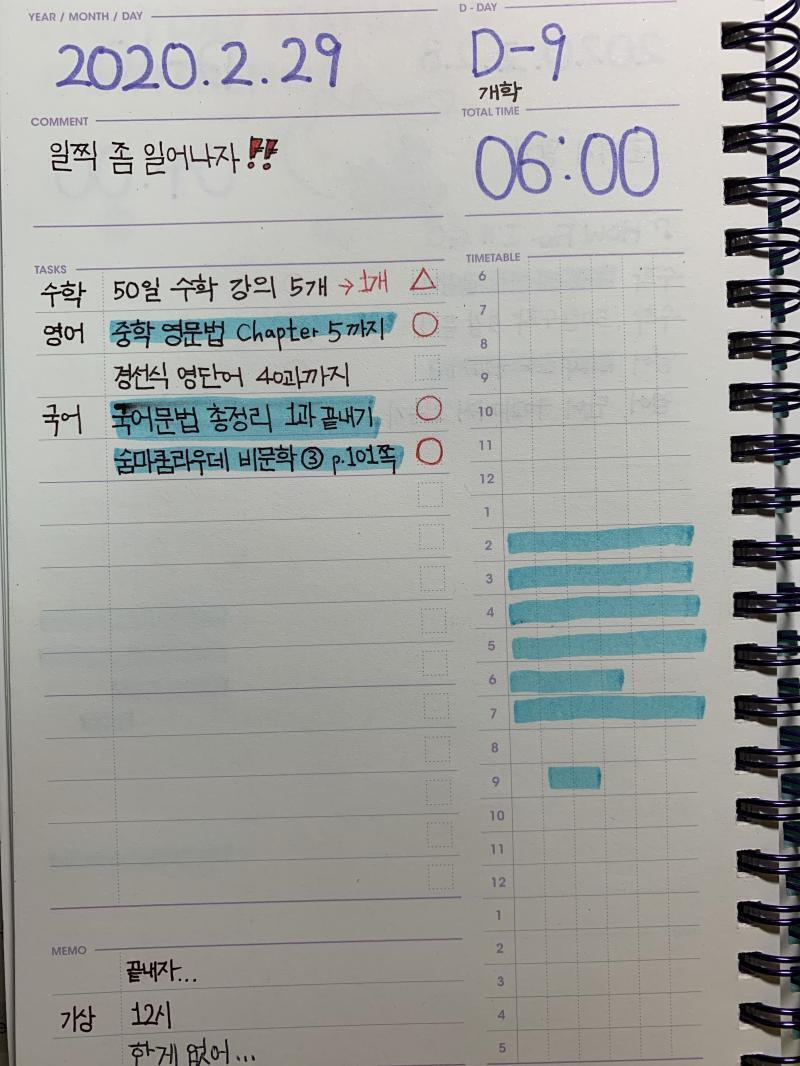 YEAR / MONTH / DAY
2020.2.29
D - DAY
D-9
개학
COMMENT
일찍 좀 일어나자 !!
TOTAL TIME
06:00
TASKS
수학 50일 수학 강의 5개 → 1개 △
영어 중학 영문법 Chapter 5까지 ○
경선식 영단어 40과까지
국어 국어문법 총정리 1과 끝내기 ○
숨마쿰라우데 비문학 ③ p.101쪽 ○
TIMETABLE
6
7
8
9
10
11
12
1
2
3
4
5
6
7
8
9
10
11
12
1
2
3
4
5
MEMO
끝내자...
기상 12시
한게 없어...